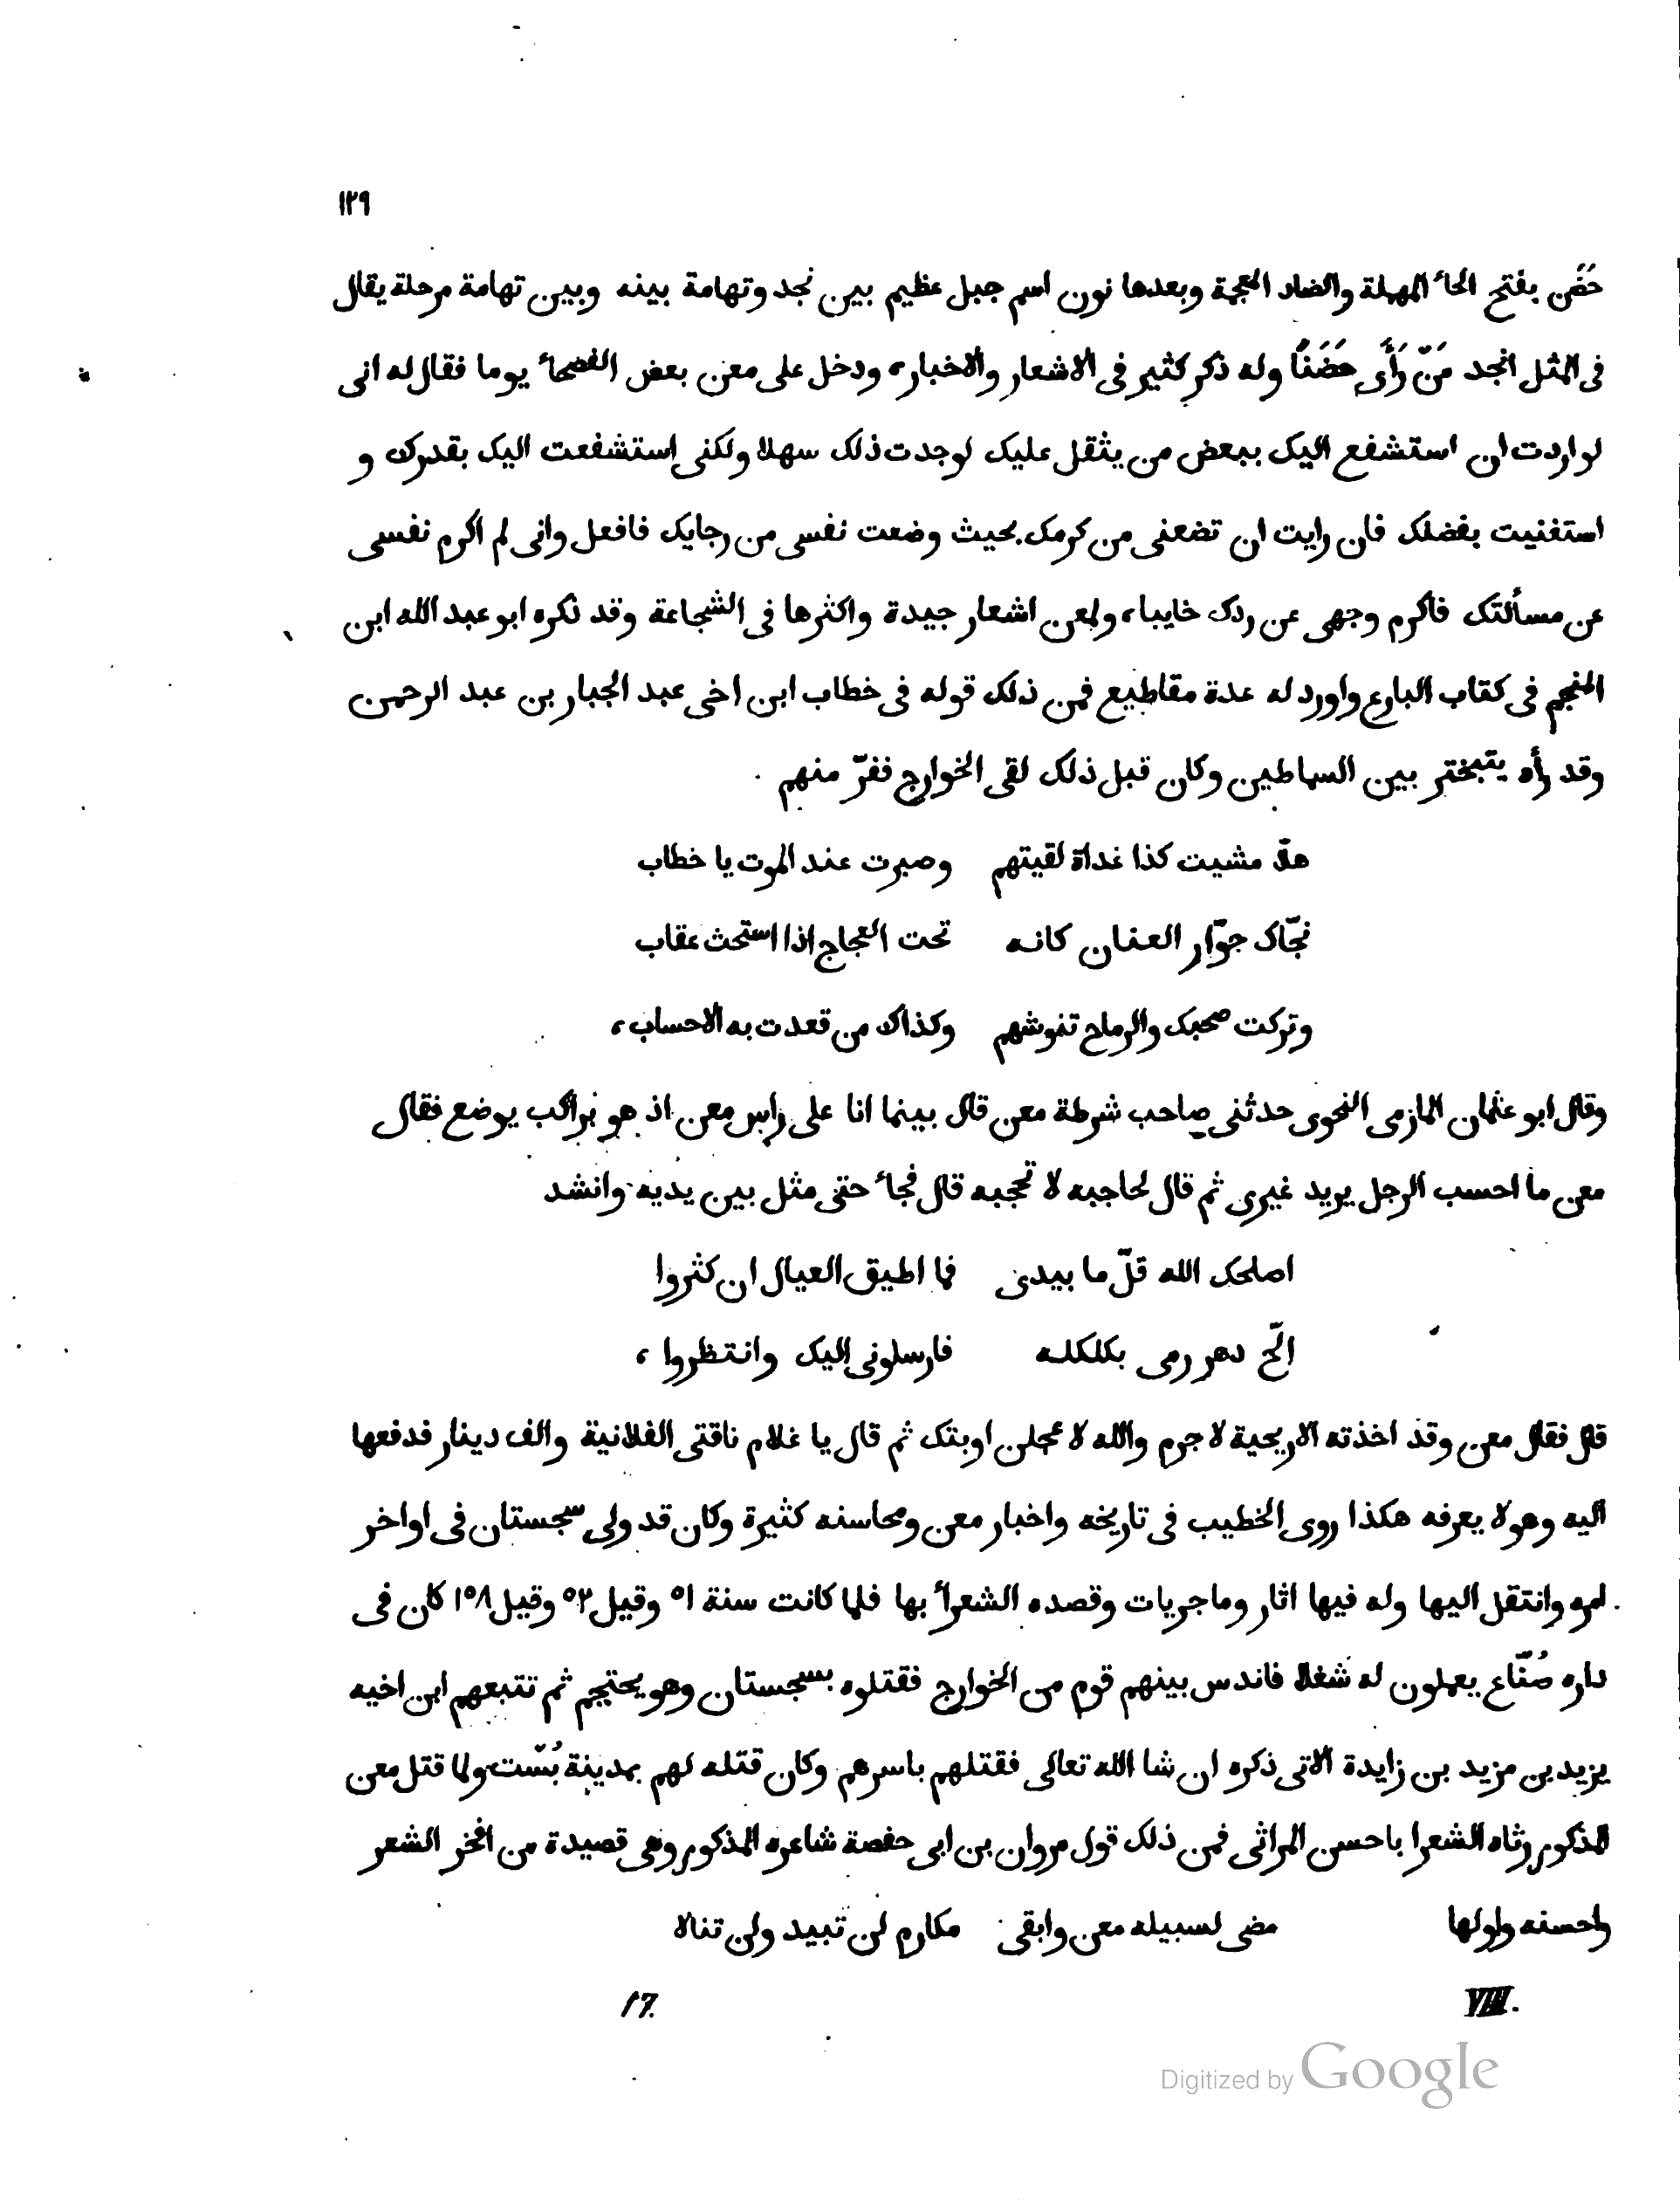 ١٢٩
حَضَن بفتح الحاء المهملة والضاد المعجمة وبعدها نون اسم جبل عظيم بين نجد وتهامة بينه وبين تهامة مرحلة يقال
فى المثل انجد مَنّ رَأَى حضَنَنًا وله ذكر كثير فى الاشعار والاخبار، ودخل على معن بعض الفصحاء يوما فقال له انى
لو اردت ان استشفع اليك ببعض من يثقل عليك لوجدت ذلك سهلا ولكنى استشفعت اليك بقدرك و
استغنيت بفضلك فان رايت ان تضعنى من كرمك بحيث وضعت نفسى من رجايك فافعل وانى لم اكرم نفسى
عن مسألتك فاكرم وجهى عن ردك خايبا، ولمعن اشعار جيدة واكثرها فى الشجاعة وقد ذكره ابو عبد الله ابن
المنجم فى كتاب البارع واورد له عدة مقاطيع فمن ذلك قوله فى خطاب ابن اخى عبد الجبار بن عبد الرحمن
وقد رأه يتبختر بين السماطين وكان قبل ذلك لقى الخوارج ففرّ منهم
هلّا مشيت كذا غداة لقيتهم وصبرت عند الموت يا خطاب
نجّاك جوّار العنان كانه تحت العجاج اذا استحث عقاب
وتركت صحبك والرماح تنوشهم وكذاك من قعدت به الاحساب،
وقال ابو عثمان المازنى النحوى حدثنى صاحب شرطة معن قال بينما انا على راس معن اذ هو براكب يوضع فقال
معن ما احسب الرجل يريد غيرى ثم قال لحاجبه لا تحجبه قال فجاء حتى مثل بين يديه وانشد
اصلحك الله قلّ ما بيدى فما اطيق العيال ان كثروا
الحّ دهر رمى بكلكله فارسلونى اليك وانتظروا،
قال فقال معن وقد اخذته الاريحية لا جرم والله لا عجلن اوبتك ثم قال يا غلام ناقتى الفلانية والف دينار فدفعها
اليه وهو لا يعرفه هكذا روى الخطيب فى تاريخه واخبار معن ومحاسنه كثيرة وكان قد ولى سجستان فى اواخر
امره وانتقل اليها وله فيها اثار وماجريات وقصده الشعراء بها فلما كانت سنة ٥١ وقيل ٥٢ وقيل ١٥٨ كان فى
داره صُنّاع يعملون له شغلا فاندس بينهم قوم من الخوارج فقتلوه بسجستان وهو يحتجم ثم تتبعهم ابن اخيه
يزيد بن مزيد بن زايدة الاتى ذكره ان شا الله تعالى فقتلهم باسرهم وكان قتله لهم بمدينة بُسّت ولما قتل معن
المذكور رثاه الشعرا باحسن المراثى فمن ذلك قول مروان بن ابى حفصة شاعره المذكور وهى قصيدة من افخر الشعر
واحسنه واولها مضى لسبيله معن وابقى مكارم لن تبيد ولن تنالا
VIII. 17.
Digitized by Google